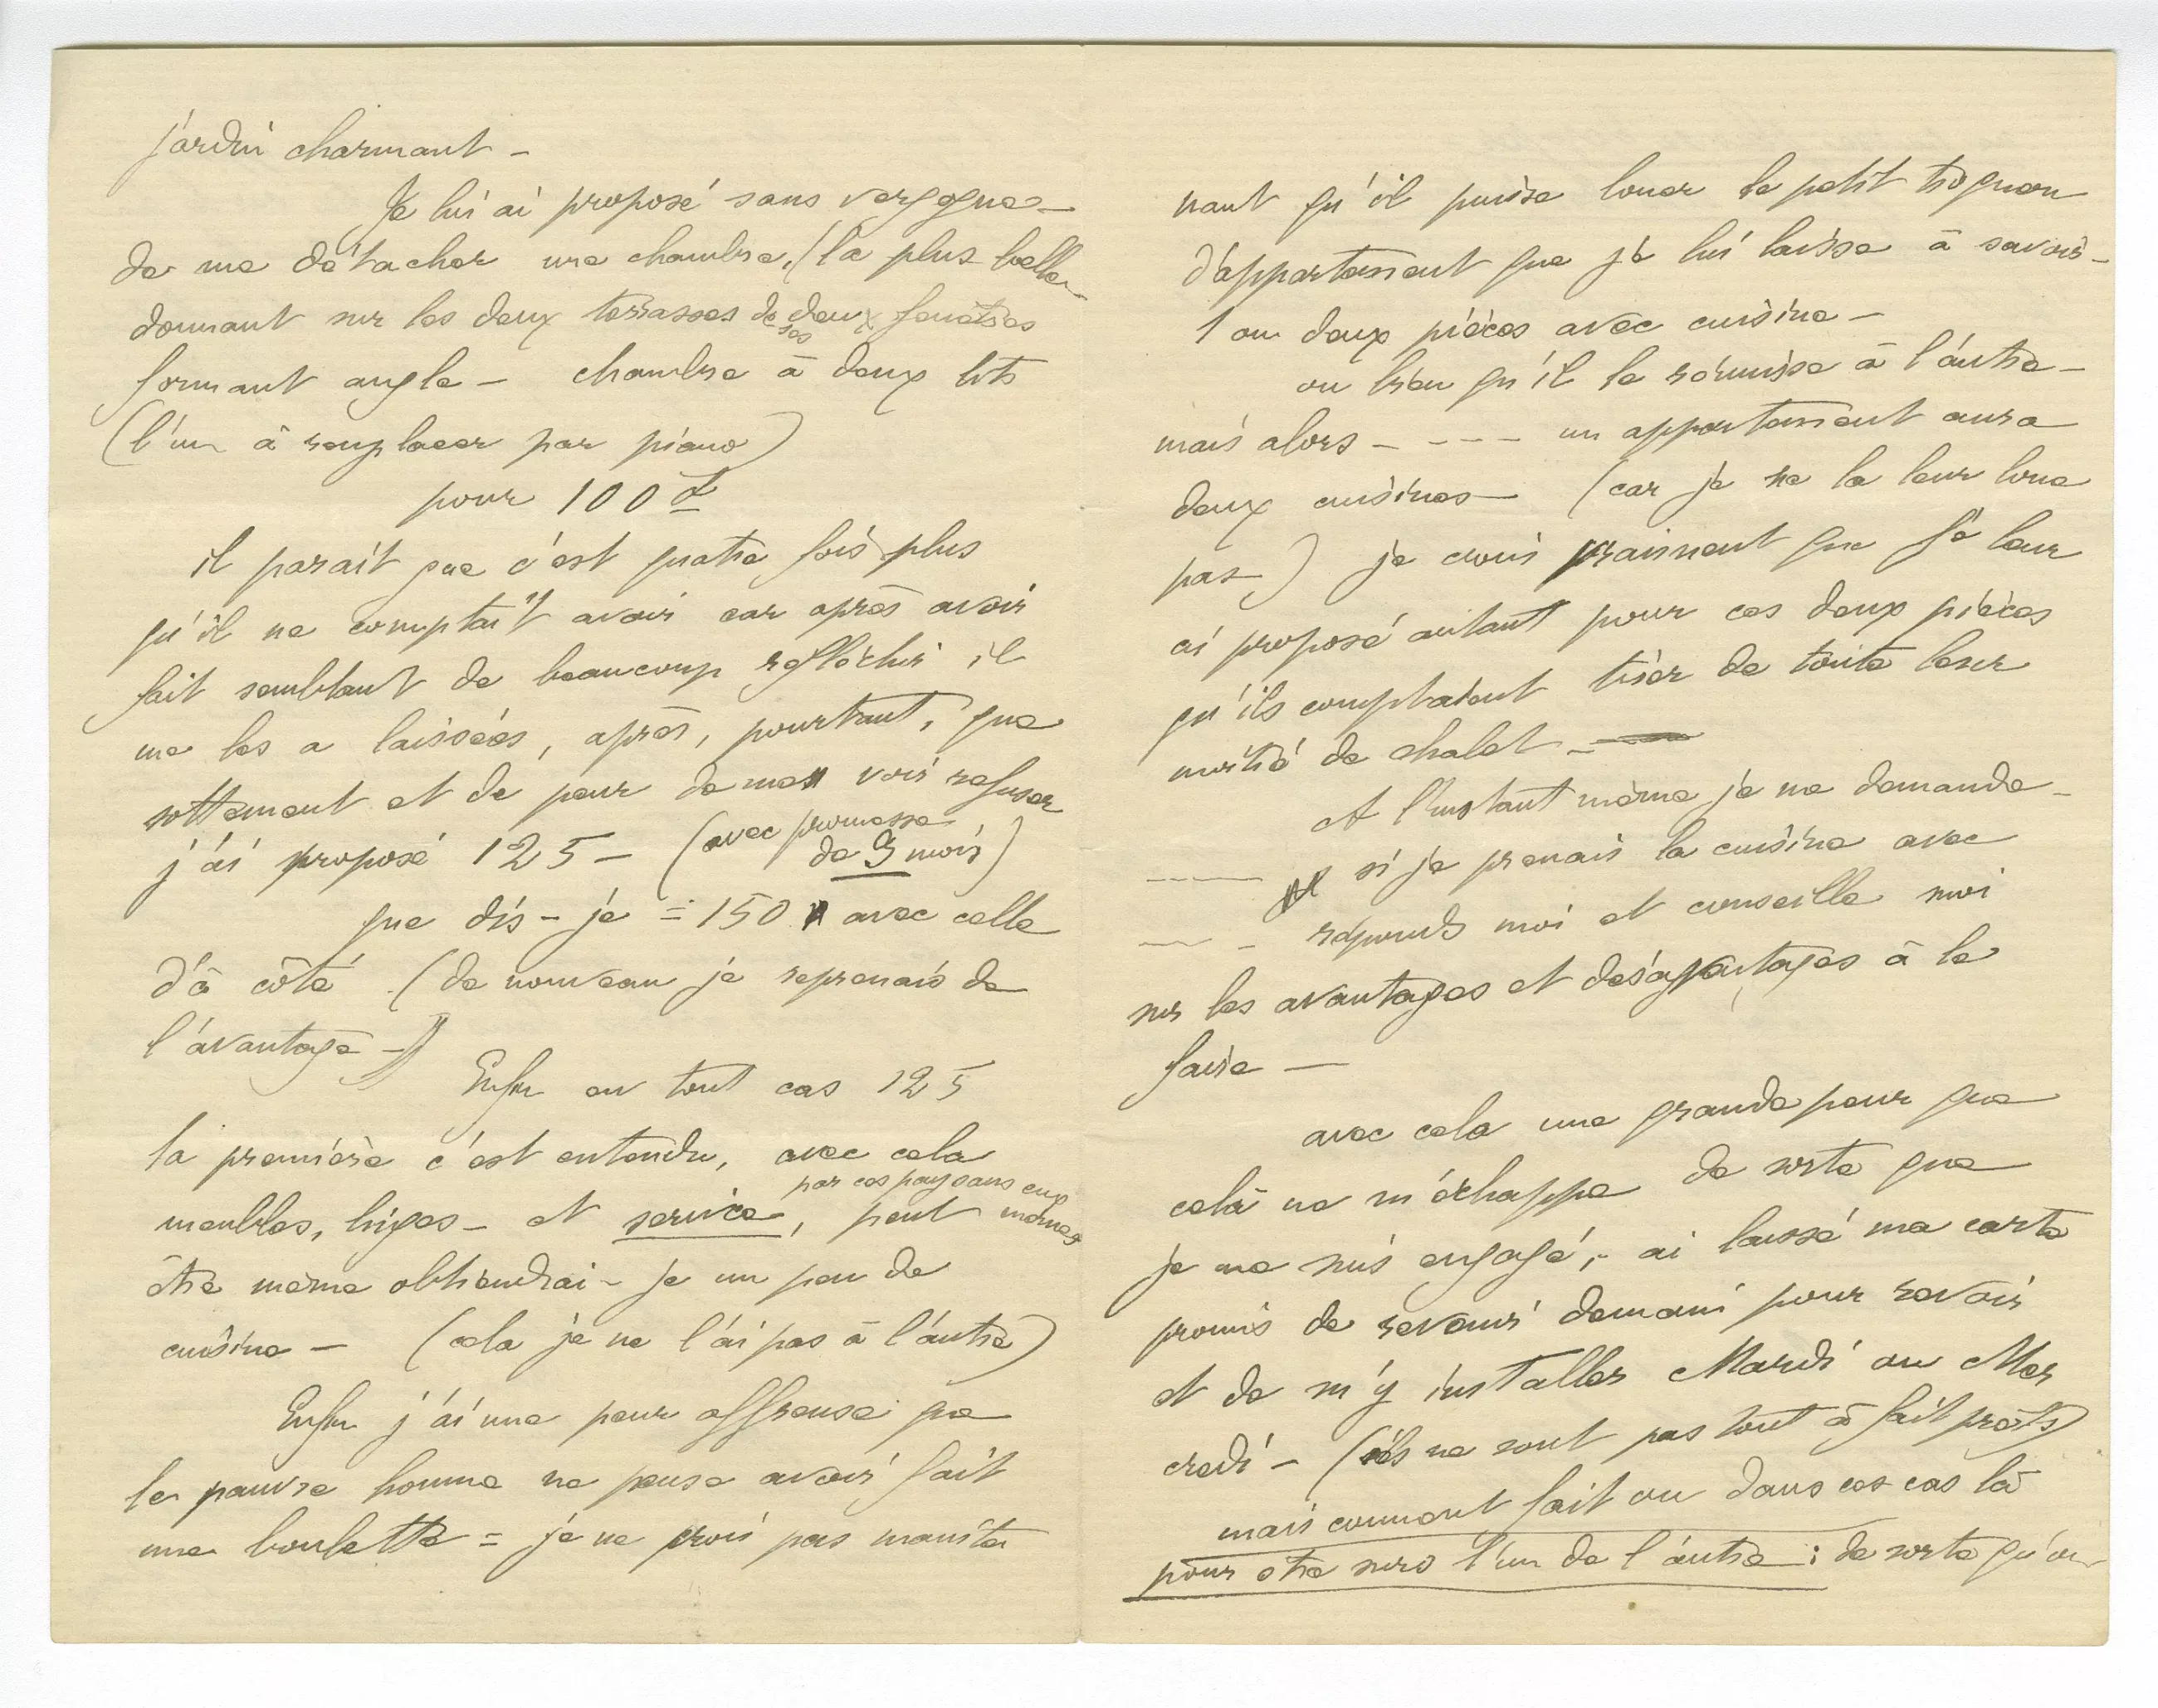 jardin charmant –
Je lui ai proposé sans vergogne –
de me détacher une chambre, (la plus belle
donnant sur les deux terrasses de ses deux fenêtres
formant angle – chambre à deux lits
(l'un à remplacer par piano)
pour 100 f
il parait que c'est quatre fois plus
qu'il ne comptait avoir car après avoir
fait semblant de beaucoup reflèchir il
me les a laissées, après, pourtant, que
sottement et de peur de me voir refuser
j'ai proposé 125 – (avec promesse
de 3 mois)
que dis-je = 150 avec celle
d'à côté (de nouveau je reprenais de
l'avantage –)
Enfin en tout cas 125
la première c'est entendu, avec cela
par ces paysans eux
meubles, linges – et service, peut mêmes
être même obtiendrai-je un peu de
cuisine – (cela je ne l'ai pas à l'autre)
Enfin j'ai une peur affreuse que
le pauvre homme ne pense avoir fait
une boulette = je ne crois pas mainte
nant qu'il puisse louer le petit
d'appartement que je lui laisse à savoir –
1 ou deux pièces avec cuisine –
ou bien qu'il le réunisse à l'autre –
mais alors – – – – un appartement aura
deux cuisines – (car je ne la leur loue
pas) je crois vraiment que je leur
ai proposé autant pour ces deux pièces
qu'ils comptaient tirer de toute leur
moitié de chalet –
A l'instant même je me demande –
si je prenais la cuisine avec
– réponds moi et conseille moi
sur les avantages et desavantages à le
faire –
avec cela une grande peur que
cela ne m'échappe de sorte que
je me suis engagé, – ai laissé ma carte
promis de revenir demain pour revoir
et de m'y installer Mardi ou Mer
credi – (ils ne sont pas tout à fait prêts)
mais comment fait on dans ces cas là
pour être surs l'un de l'autre : de sorte qu'on